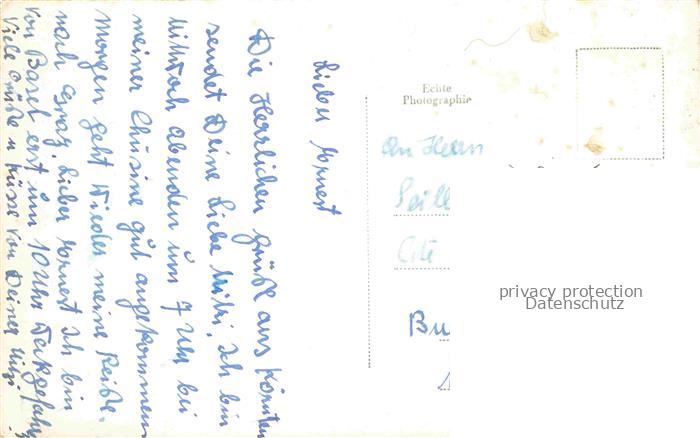 Lieber Ernest
Die Herzlichen Grüße aus Kärnten
sendet Deine Liebe Mitzi. Ich bin
Mittwoch abenden um 7 Uhr bei
meiner Chusine gut angekommen
morgen geht wieder meine Reiße.
nach Graz. Lieber Ernest Ich bin
von Basel erst um 10 Uhr Wekgefahr
Viele Grüße u Küsse von Deiner Mizi.
Echte
Photographie
An Herrn
Bu
privacy protection
Datenschutz